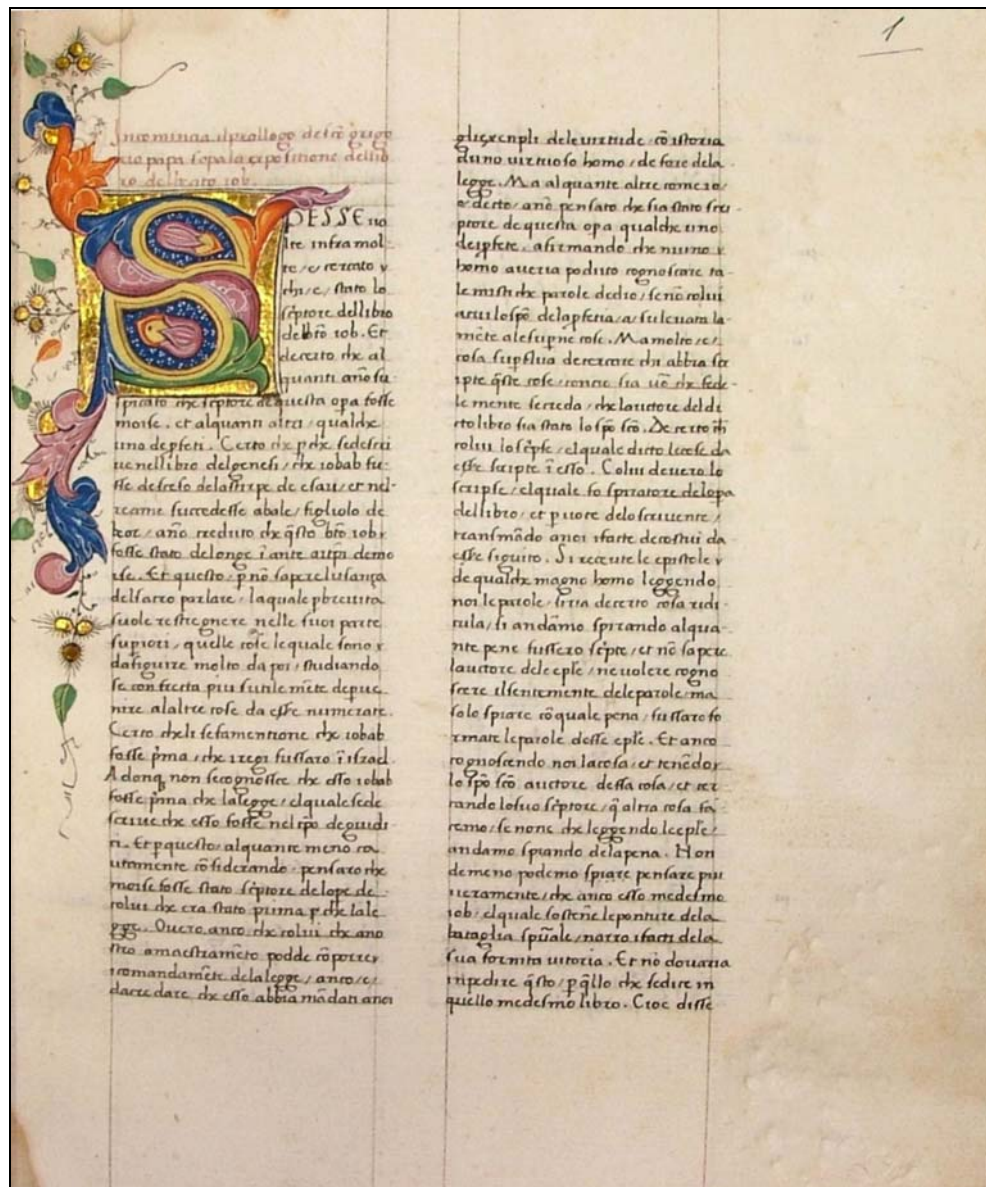 1
Incomincia il prollogo de scō grigo
rio papa sopa la expositione dellib
ro del beato iob.
SPESSE uo
lte infra mol
te / e / cercato
chi / e / stato lo
sc̄ptore dellibro
del btō iob. Et
decerto che al
quanti ano su
spicato che sc̄ptore de questa opa fosse
moise. et alquanti altri / qualche
uno de pfeti. Certo che pche se descri
ue nellibro del genesi / che iobab fu
sse desceso dela stirpe de esau / et nel
reame succedesse abale / figliolo de
beor / ano creduto che q̄sto btō iob
fosse stato delonge īante aitpi demo
ise. Et questo / p nō sapere lusança
del sacro parlare / laquale p breuita
suole restregnere nelle suoi parte
supiori / quelle cose lequale sono
da siguire molto da poi / studiando
se con frecta piu sutile mēte depue
nire alaltre cose da esse numerate.
Certo cheli se fa mentione che iobab
fosse pma / che i regi fussaro ī israel.
Adonq non se cognosce che esso iobab
fosse pma che la legge / elquale se de
scriue che esso fosse nel tpo de giudi
ci. Et p questo / alquante meno ca
utamente cōsiderando / pensaro che
moise fosse stato sc̄ptore de lope de
colui che era stato prima p che la le
gge. Ouero anco / che colui che a no
stro amaestramēto podde cōporre
i comandamēte dela legge / anco / e /
da credare che esso abbia mādati a noi
gli exenpli dele uirtude / cō istoria
duno uirtuoso homo / de fore dela
legge. Ma alquante altre come io /
o decto / ano pensato che sia stato scri
ptore de questa opa qualche uno
dei pfete. afirmando che niuno
homo aueria poduto cognoscare ta
le mistiche parole de dio / se nō colui
a cui lo spō dela pfetia / a suleuata la
mēte ale supne cose. Ma molto / e /
cosa supflua de cercare chi abbia scr
ipte q̄ste cose / concio sia
le mente se creda / che lauctore del di
cto libro sia stato lo spō scō. De certo
colui lo sc̄pse / elquale dicto le cose da
essere scripte ī esso. Colui de uero lo
scripse / elquale fo spiratore de lopa
dellibro / et p uoce delo scriuente /
transmādo a noi i facte de costui da
essere siguito. Si receuute le epistole
de qualche magno homo leggendo
noi le parole / siria de certo cosa ridi
cula / si andāmo spirando alqua
nte pene fussero sc̄pte / et nō sapere
lauctore dele eple / ne uolere cogno
scere il sentemente dele parole / ma
solo spiare cō quale pena / fussaro fo
rmate le parole desse eple. Et anco
cognoscendo noi la cosa / et tenēdo
lo spō scō auctore dessa cosa / et cer
cando lo suo sc̄ptore / q̄ altra cosa fa
remo / se none che leggendo le eple /
andamo spiando dela pena. Non
de meno podemo spiare pensare piu
ueramente / che anco esso medesmo
iob / elquale sostēne le ponture dela
bataglia spūale / narro i facti dela
sua fornita uitoria. Et nō douaria
inpedire q̄sto / p q̄llo che se dice in
quello medesmo libro. Cioe disse